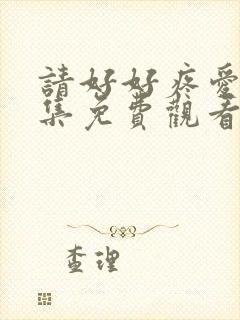 請好好疼愛
集免費觀看
查理